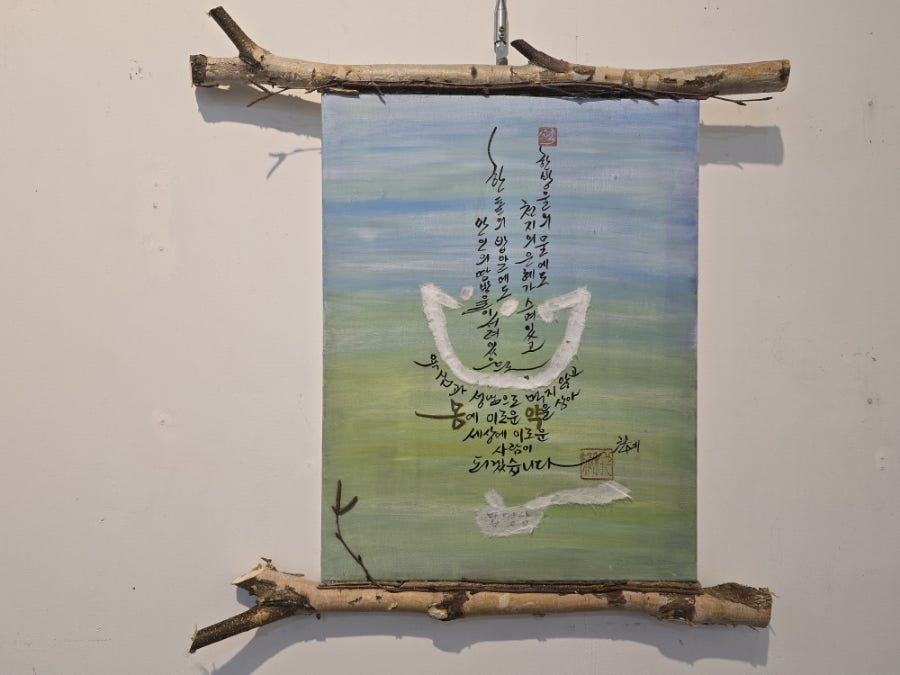 한방울의 물에도
천지의 은혜가 스며있고
한톨의 밥알에도
만인의 땀방울이 서려있으므로
욕심과 성냄으로 먹지않고
몸에 이로운 약을 삼아
세상에 이로운
사람이
되겠습니다